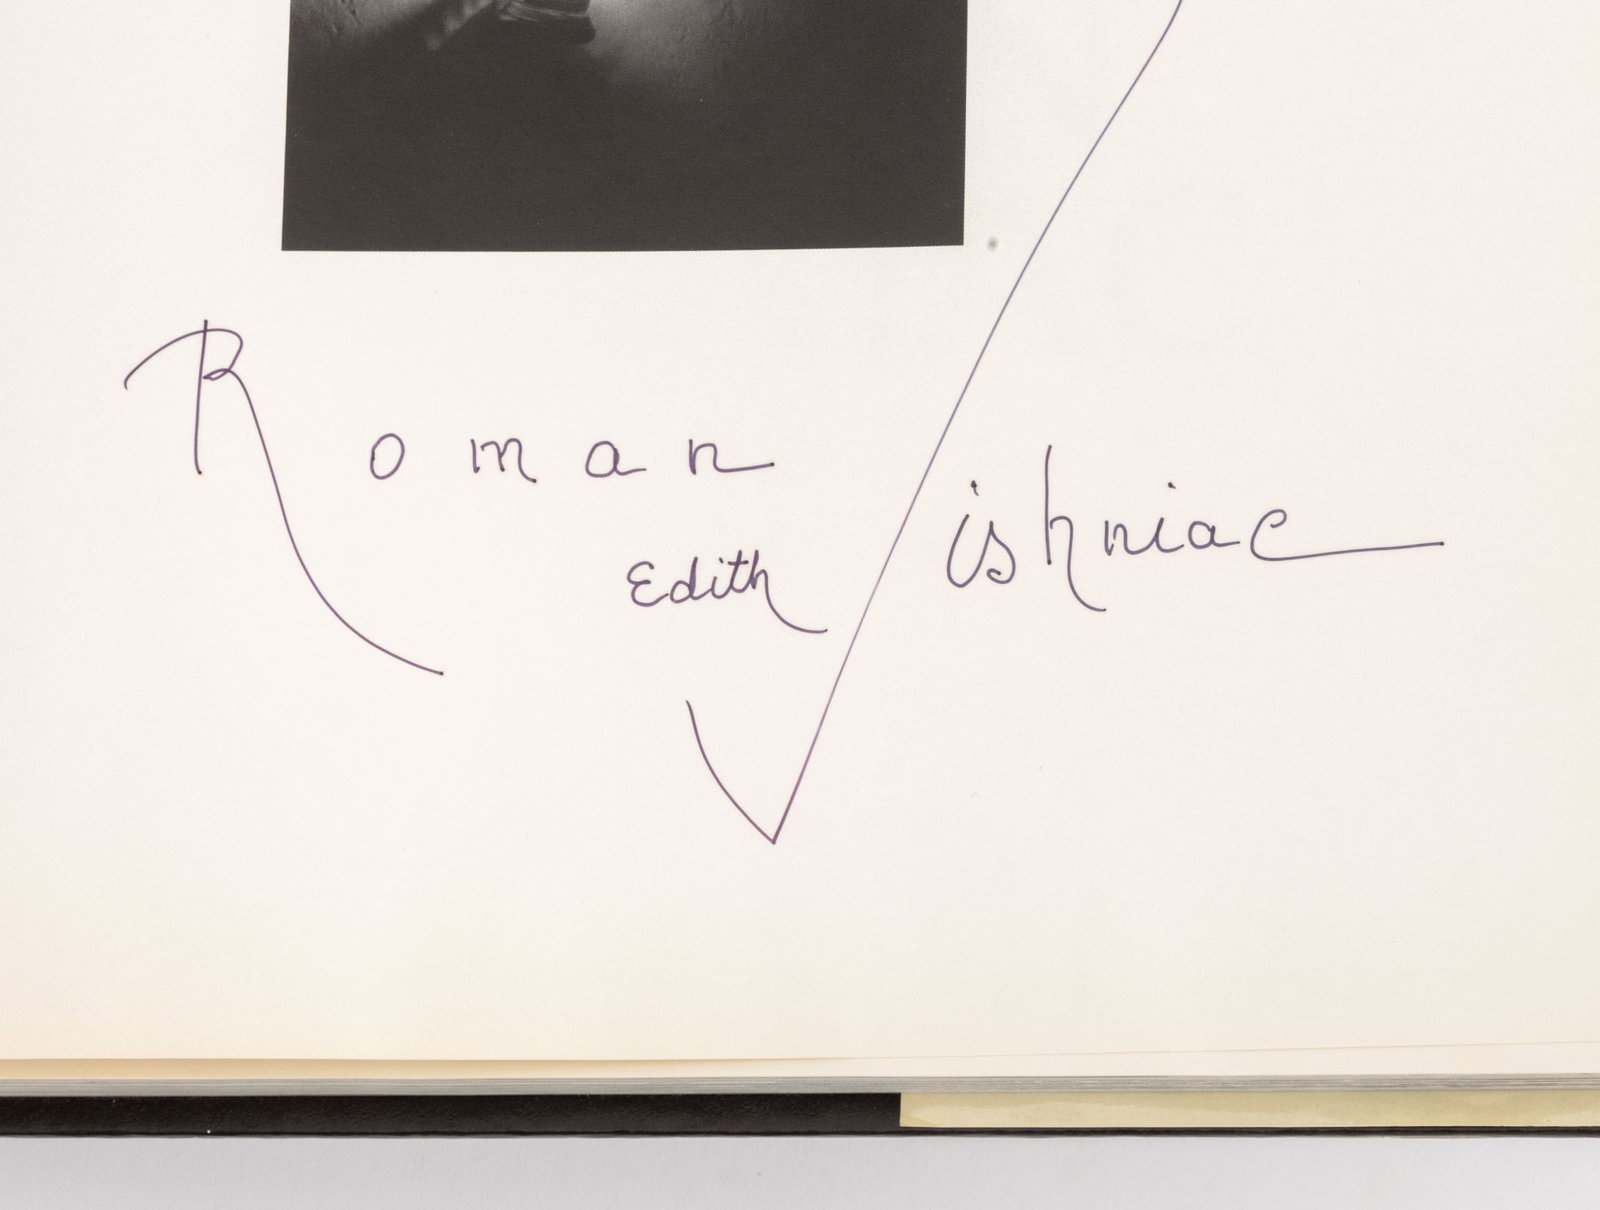 Roman Vishniac
Edith